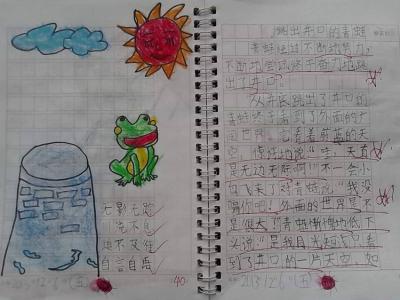 无影无踪
川流不息
自言自语
40
跳出井口的青蛙
青蛙经过不断地努力，
不断地尝试终于奋力地跳
出了井口。
从井底跳出了井口的
青蛙终于看到了外面的广
阔世界。它看着蔚蓝的天
空，惊讶地说“哇！天真
是无边无际啊！”不一会小
鸟飞来了对青蛙说“我没
骗你吧！外面的世界是不
是很大！”青蛙惭愧地低下
头说“是我目光短浅只看
到了井口的一片天空，如
2013.12.6（五）